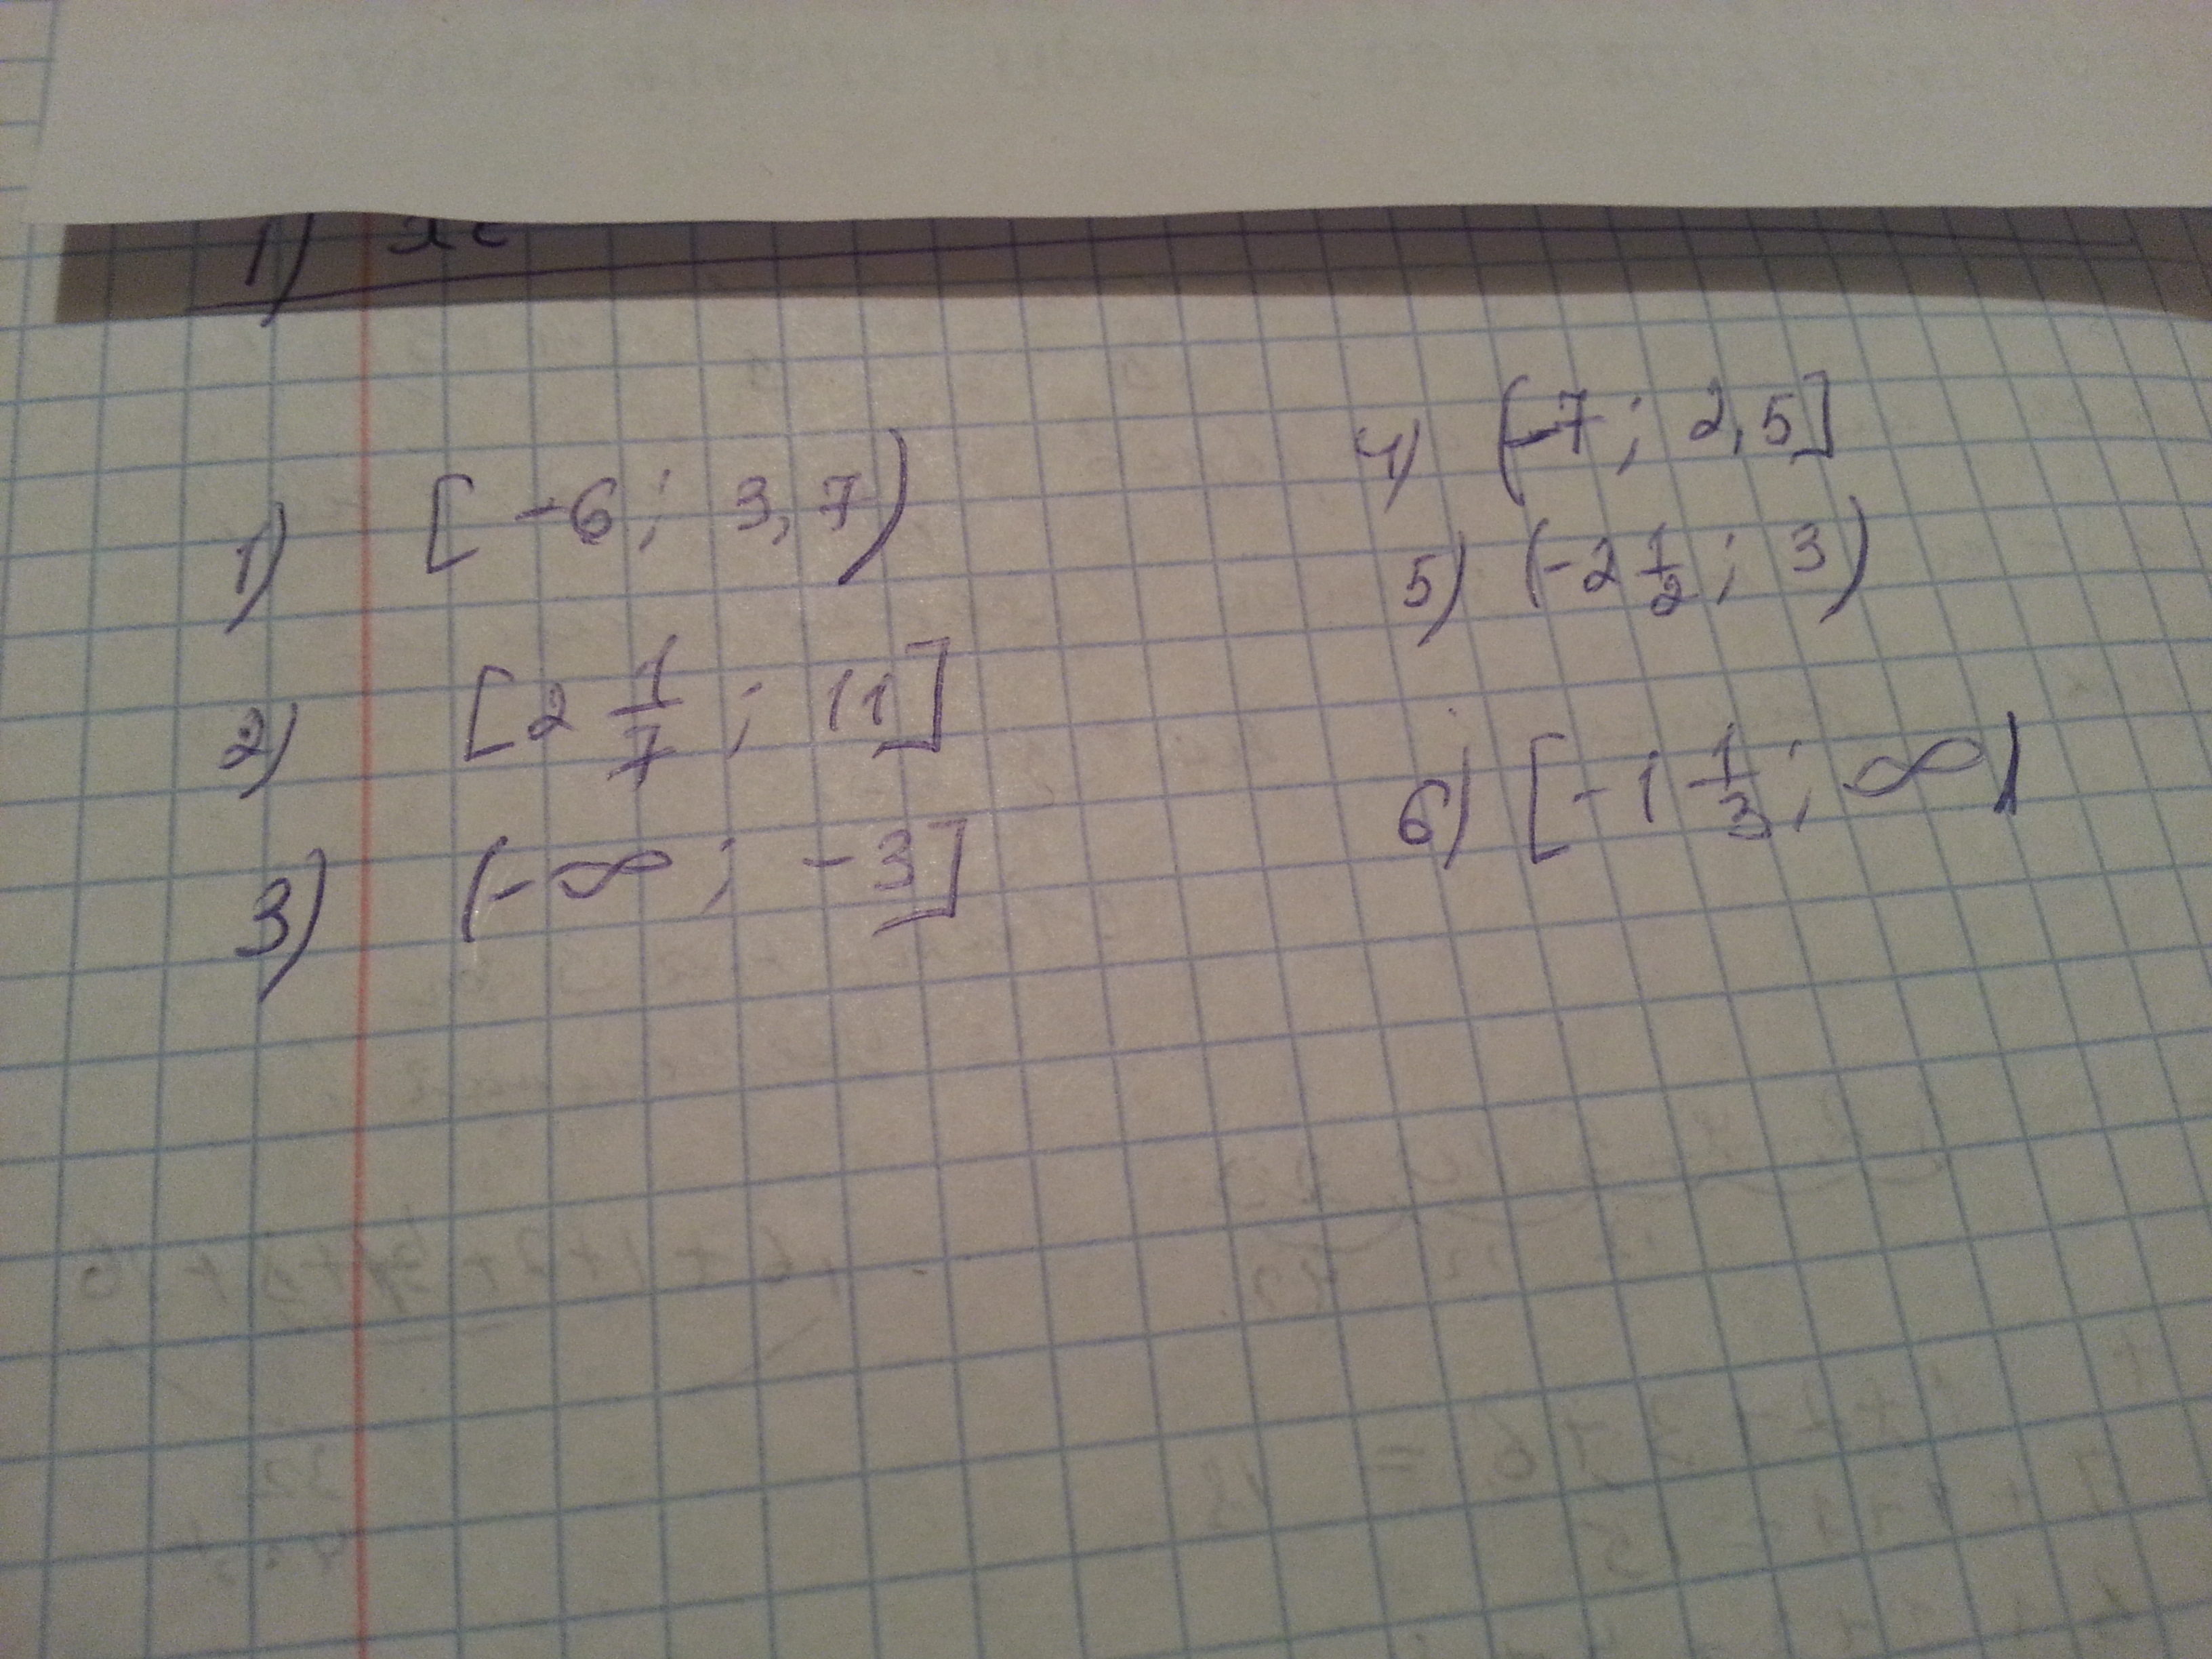 1)
1) [ -6; 3,7)
2) [2 1/7; 11]
3) (-∞; -3]
4) (-7; 2,5]
5) (-2 1/2; 3)
6) [-1 1/3; ∞)